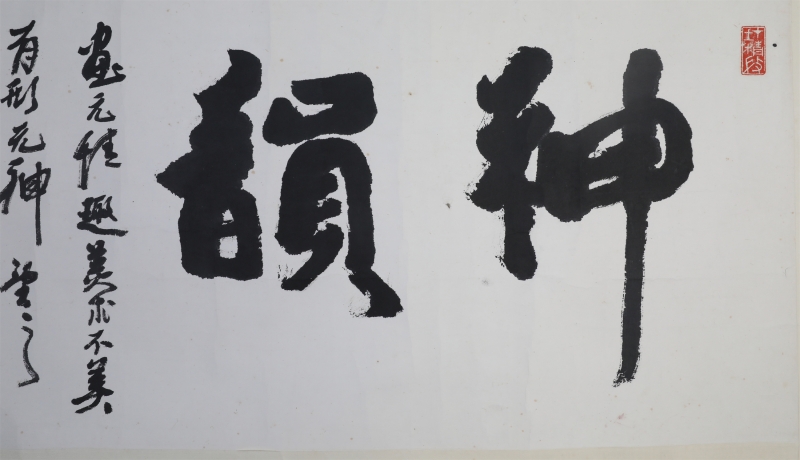 神韻
畫无情趣美亦不美
有形无神